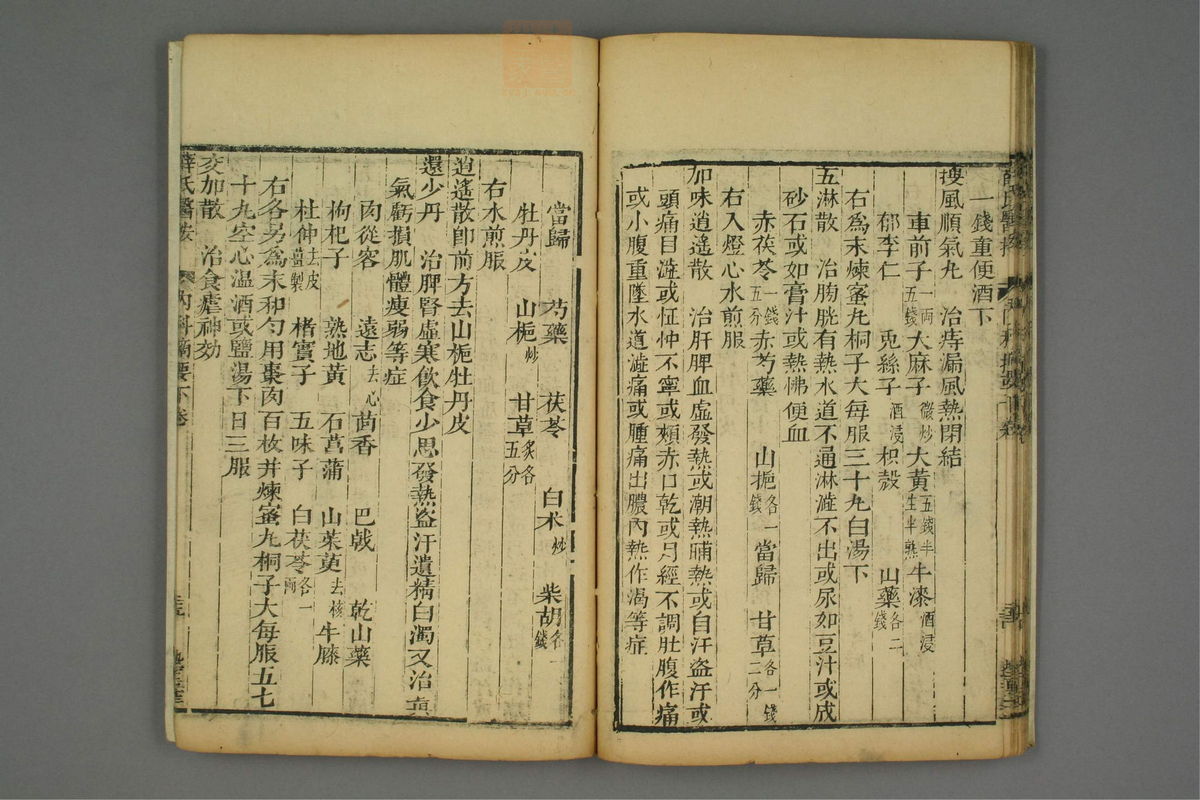 一錢重便酒下
搜風順氣丸　治痔漏風熱閉結
車前子一兩五錢　大麻子微炒　大黃五錢半生半熟　牛漆酒浸
郁李仁　兎絲子酒浸　枳殼　山藥各二錢
右為末煉蜜丸桐子大每服三十丸白湯下
五淋散　治膀胱有熱水道不通淋澁不出或尿如豆汁或成
砂石或如膏汁或熱怫便血
赤茯苓一錢五分　赤芍藥　山梔各一錢　當歸　甘草各一錢二分
右入燈心水煎服
加味逍遙散　治肝脾血虛發熱或潮熱晡熱或自汗盜汗或
頭痛目澁或怔忡不寧或頰赤口乾或月經不調肚腹作痛
或小腹重墜水道澁痛或腫痛出膿內熱作渴等症
當歸　芍藥　茯苓　白术炒　柴胡各一錢
牡丹皮　山梔炒　甘草炙各五分
右水煎服
逍遙散卽前方去山梔牡丹皮
還少丹　治脾腎虛寒飲食少思發熱盜汗遺精白濁又治真
氣虧損肌體瘦弱等症
肉從容　遠志去心　茴香　巴戟　乾山藥
枸杞子　熟地黃　石菖蒲　山茱萸去核　牛膝
杜仲去皮薑製　楮實子　五味子　白茯苓各一兩
右各另為末和勻用棗肉百枚并煉蜜丸桐子大每服五七
十丸空心温酒或鹽湯下日三服
交加散　治食瘧神効
薛氏醫按　內科摘要下卷